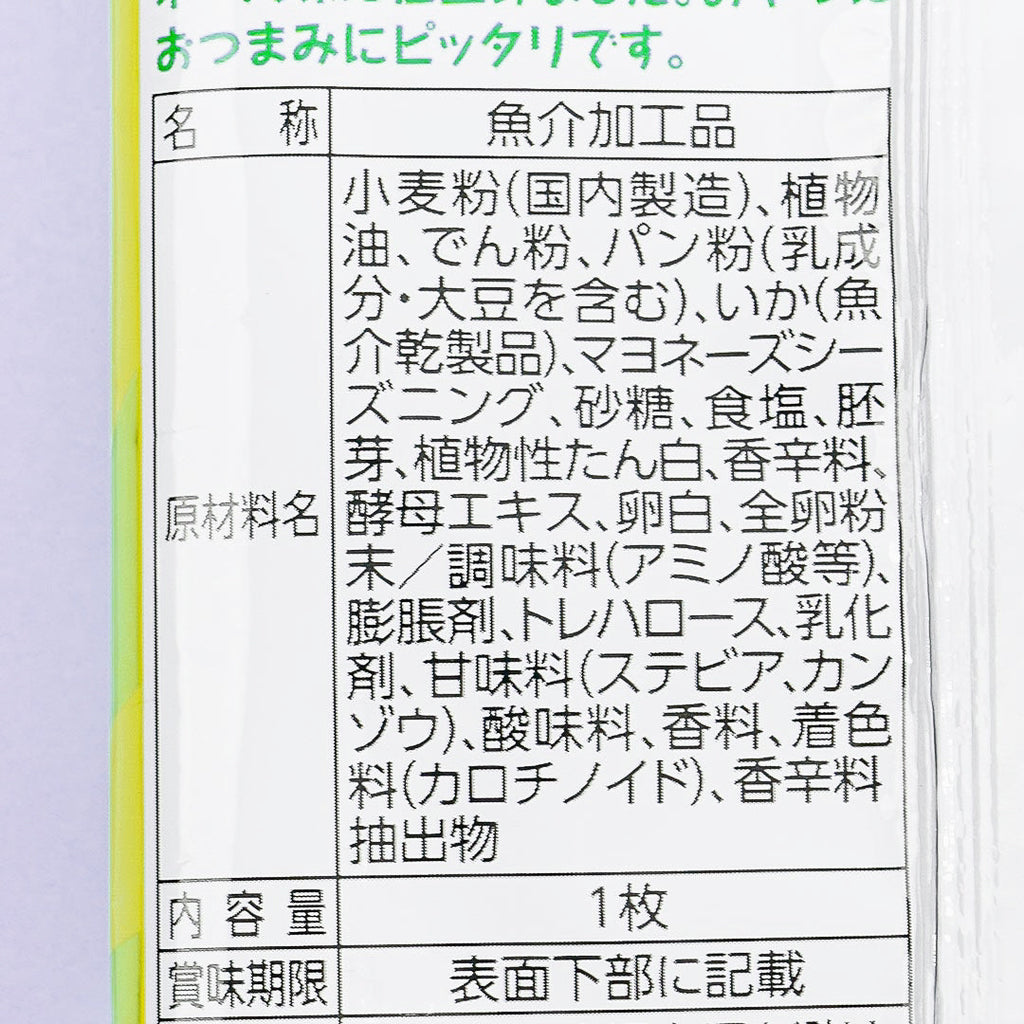 おつまみにピッタリです。
名称 魚介加工品
原材料名
小麦粉(国内製造)、植物
油、でん粉、パン粉(乳成
分・大豆を含む)、いか(魚
介乾製品)、マヨネーズシー
ズニング、砂糖、食塩、胚
芽、植物性たん白、香辛料、
酵母エキス、卵白、全卵粉
末／調味料(アミノ酸等)、
膨脹剤、トレハロース、乳化
剤、甘味料(ステビア、カン
ゾウ)、酸味料、香料、着色
料(カロチノイド)、香辛料
抽出物
内容量 1枚
賞味期限 表面下部に記載